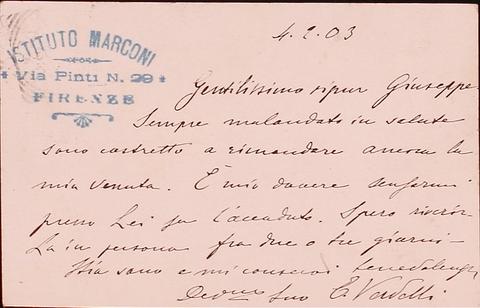 ISTITUTO MARCONI
Via Pinti N. 29
FIRENZE
4.2.03
Gentilissimo signor Giuseppe
Sempre malandato in salute
sono costretto a rimandare ancora la
mia venuta. È mio dovere scusarmi
presso Lei per l'accaduto. Spero riverir
La in persona fra due o tre giorni –
Stia sano e mi conservi
Devmo Suo E Verdelli